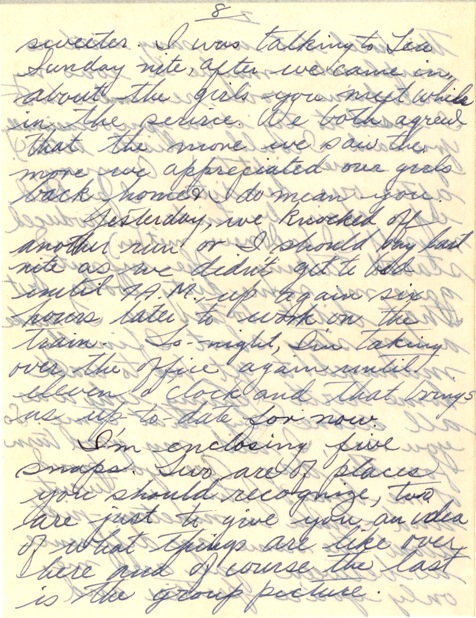 8
sweeter. I was talking to Leu
Sunday nite, after we came in,
about the girls you meet while
in the service. We both agreed
that the more we saw the
more we appreciated our girls
back home & I do mean you.
Yesterday, we knocked off
another run or I should say last
nite as we didn't get to bed
until 2 A.M., up again six
hours later to work on the
train. To-night, I'm taking
over the office again until
eleven o'clock and that brings
us up to date for now.
I'm enclosing five
snaps. Two are of places
you should recognize, two
are just to give you an idea
of what things are like over
here and of course the last
is the group picture.